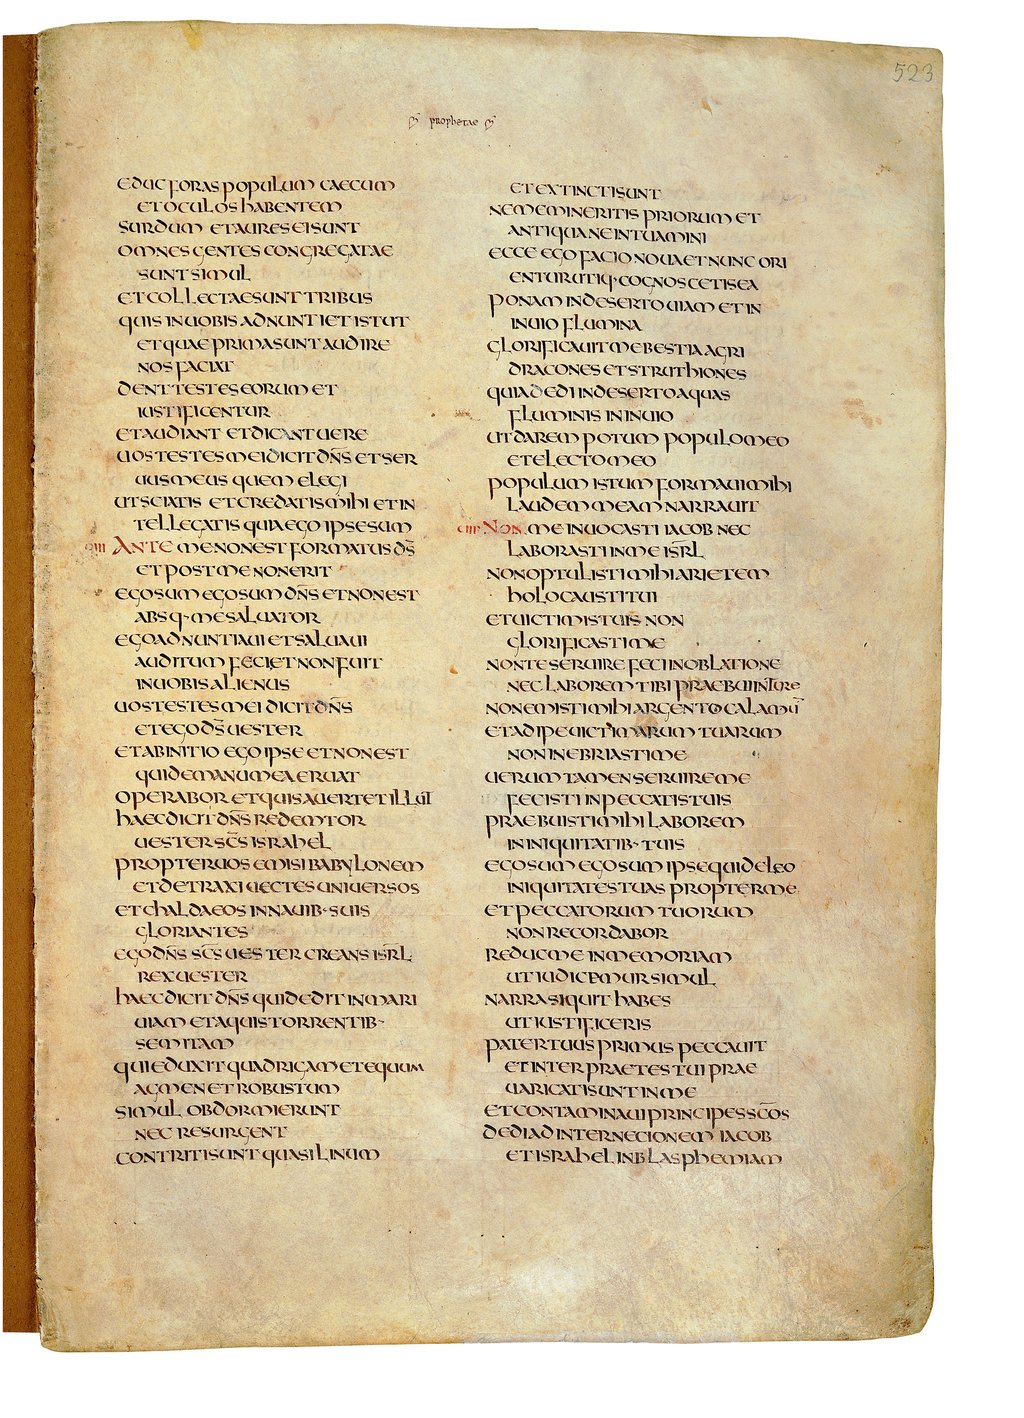 523
prophetae
EDUC FORAS POPULUM CAECUM
ET OCULOS HABENTEM
SURDUM ET AURES EI SUNT
OMNES GENTES CONGREGATAE
SUNT SIMUL
ET COLLECTAE SUNT TRIBUS
QUIS IN UOBIS ADNUNTIET ISTUT
ET QUAE PRIMA SUNT AUDIRE
NOS FACIAT
DENT TESTES EORUM ET
IUSTIFICENTUR
ET AUDIANT ET DICANT UERE
UOS TESTES MEI DICIT DN̅S ET SER
UUS MEUS QUEM ELEGI
UT SCIATIS ET CREDATIS MIHI ET IN
TELLEGATIS QUIA EGO IPSE SUM
ANTE ME NON EST FORMATUS D̅S
ET POST ME NON ERIT
EGO SUM EGO SUM DN̅S ET NON EST
ABSQ· ME SALUATOR
EGO ADNUNTIAUI ET SALUAUI
AUDITUM FECI ET NON FUIT
IN UOBIS ALIENUS
UOS TESTES MEI DICIT DN̅S
ET EGO D̅S UESTER
ET AB INITIO EGO IPSE ET NON EST
QUI DE MANU MEA ERUAT
OPERABOR ET QUIS AUERTET ILLUT
HAEC DICIT DN̅S REDEMTOR
UESTER SC̅S ISRAHEL
PROPTER UOS EMISI BABYLONEM
ET DETRAXI UECTES UNIUERSOS
ET CHALDAEOS IN NAUIB· SUIS
GLORIANTES
EGO DN̅S SC̅S UESTER CREANS ISR̅L
REX UESTER
HAEC DICIT DN̅S QUI DEDIT IN MARI
UIAM ET AQUIS TORRENTIB·
SEMITAM
QUI EDUXIT QUADRIGAM ET EQUUM
AGMEN ET ROBUSTUM
SIMUL OBDORMIERUNT
NEC RESURGENT
CONTRITI SUNT QUASI LINUM
ET EXTINCTI SUNT
NE MEMINERITIS PRIORUM ET
ANTIQUA NE INTUAMINI
ECCE EGO FACIO NOUA ET NUNC ORI
ENTUR UTIQ· COGNOSCETIS EA
PONAM IN DESERTO UIAM ET IN
INUIO FLUMINA
GLORIFICAUIT ME BESTIA AGRI
DRACONES ET STRUTHIONES
QUIA DEDI IN DESERTO AQUAS
FLUMINIS IN INUIO
UT DAREM POTUM POPULO MEO
ET ELECTO MEO
POPULUM ISTUM FORMAUI MIHI
LAUDEM MEAM NARRAUIT
NON ME INUOCASTI IACOB NEC
LABORASTI IN ME ISR̅L
NON OPTULISTI MIHI ARIETEM
HOLOCAUSTI TUI
ET UICTIMIS TUIS NON
GLORIFICASTI ME
NON TE SERUIRE FECI IN OBLATIONE
NEC LABOREM TIBI PRAEBUI IN TURE
NON EMISTI MIHI ARGENTO CALAMU̅
ET ADIPE UICTIMARUM TUARUM
NON INEBRIASTI ME
UERUM TAMEN SERUIRE ME
FECISTI IN PECCATIS TUIS
PRAEBUISTI MIHI LABOREM
IN INIQUITATIB· TUIS
EGO SUM EGO SUM IPSE QUI DELEO
INIQUITATES TUAS PROPTER ME
ET PECCATORUM TUORUM
NON RECORDABOR
REDUC ME IN MEMORIAM
UT IUDICEMUR SIMUL
NARRA SI QUIT HABES
UT IUSTIFICERIS
PATER TUUS PRIMUS PECCAUIT
ET INTERPRAETES TUI PRAE
UARICATI SUNT IN ME
ET CONTAMINAUI PRINCIPES SC̅OS
DEDI AD INTERNECIONEM IACOB
ET ISRAHEL IN BLASPHEMIAM